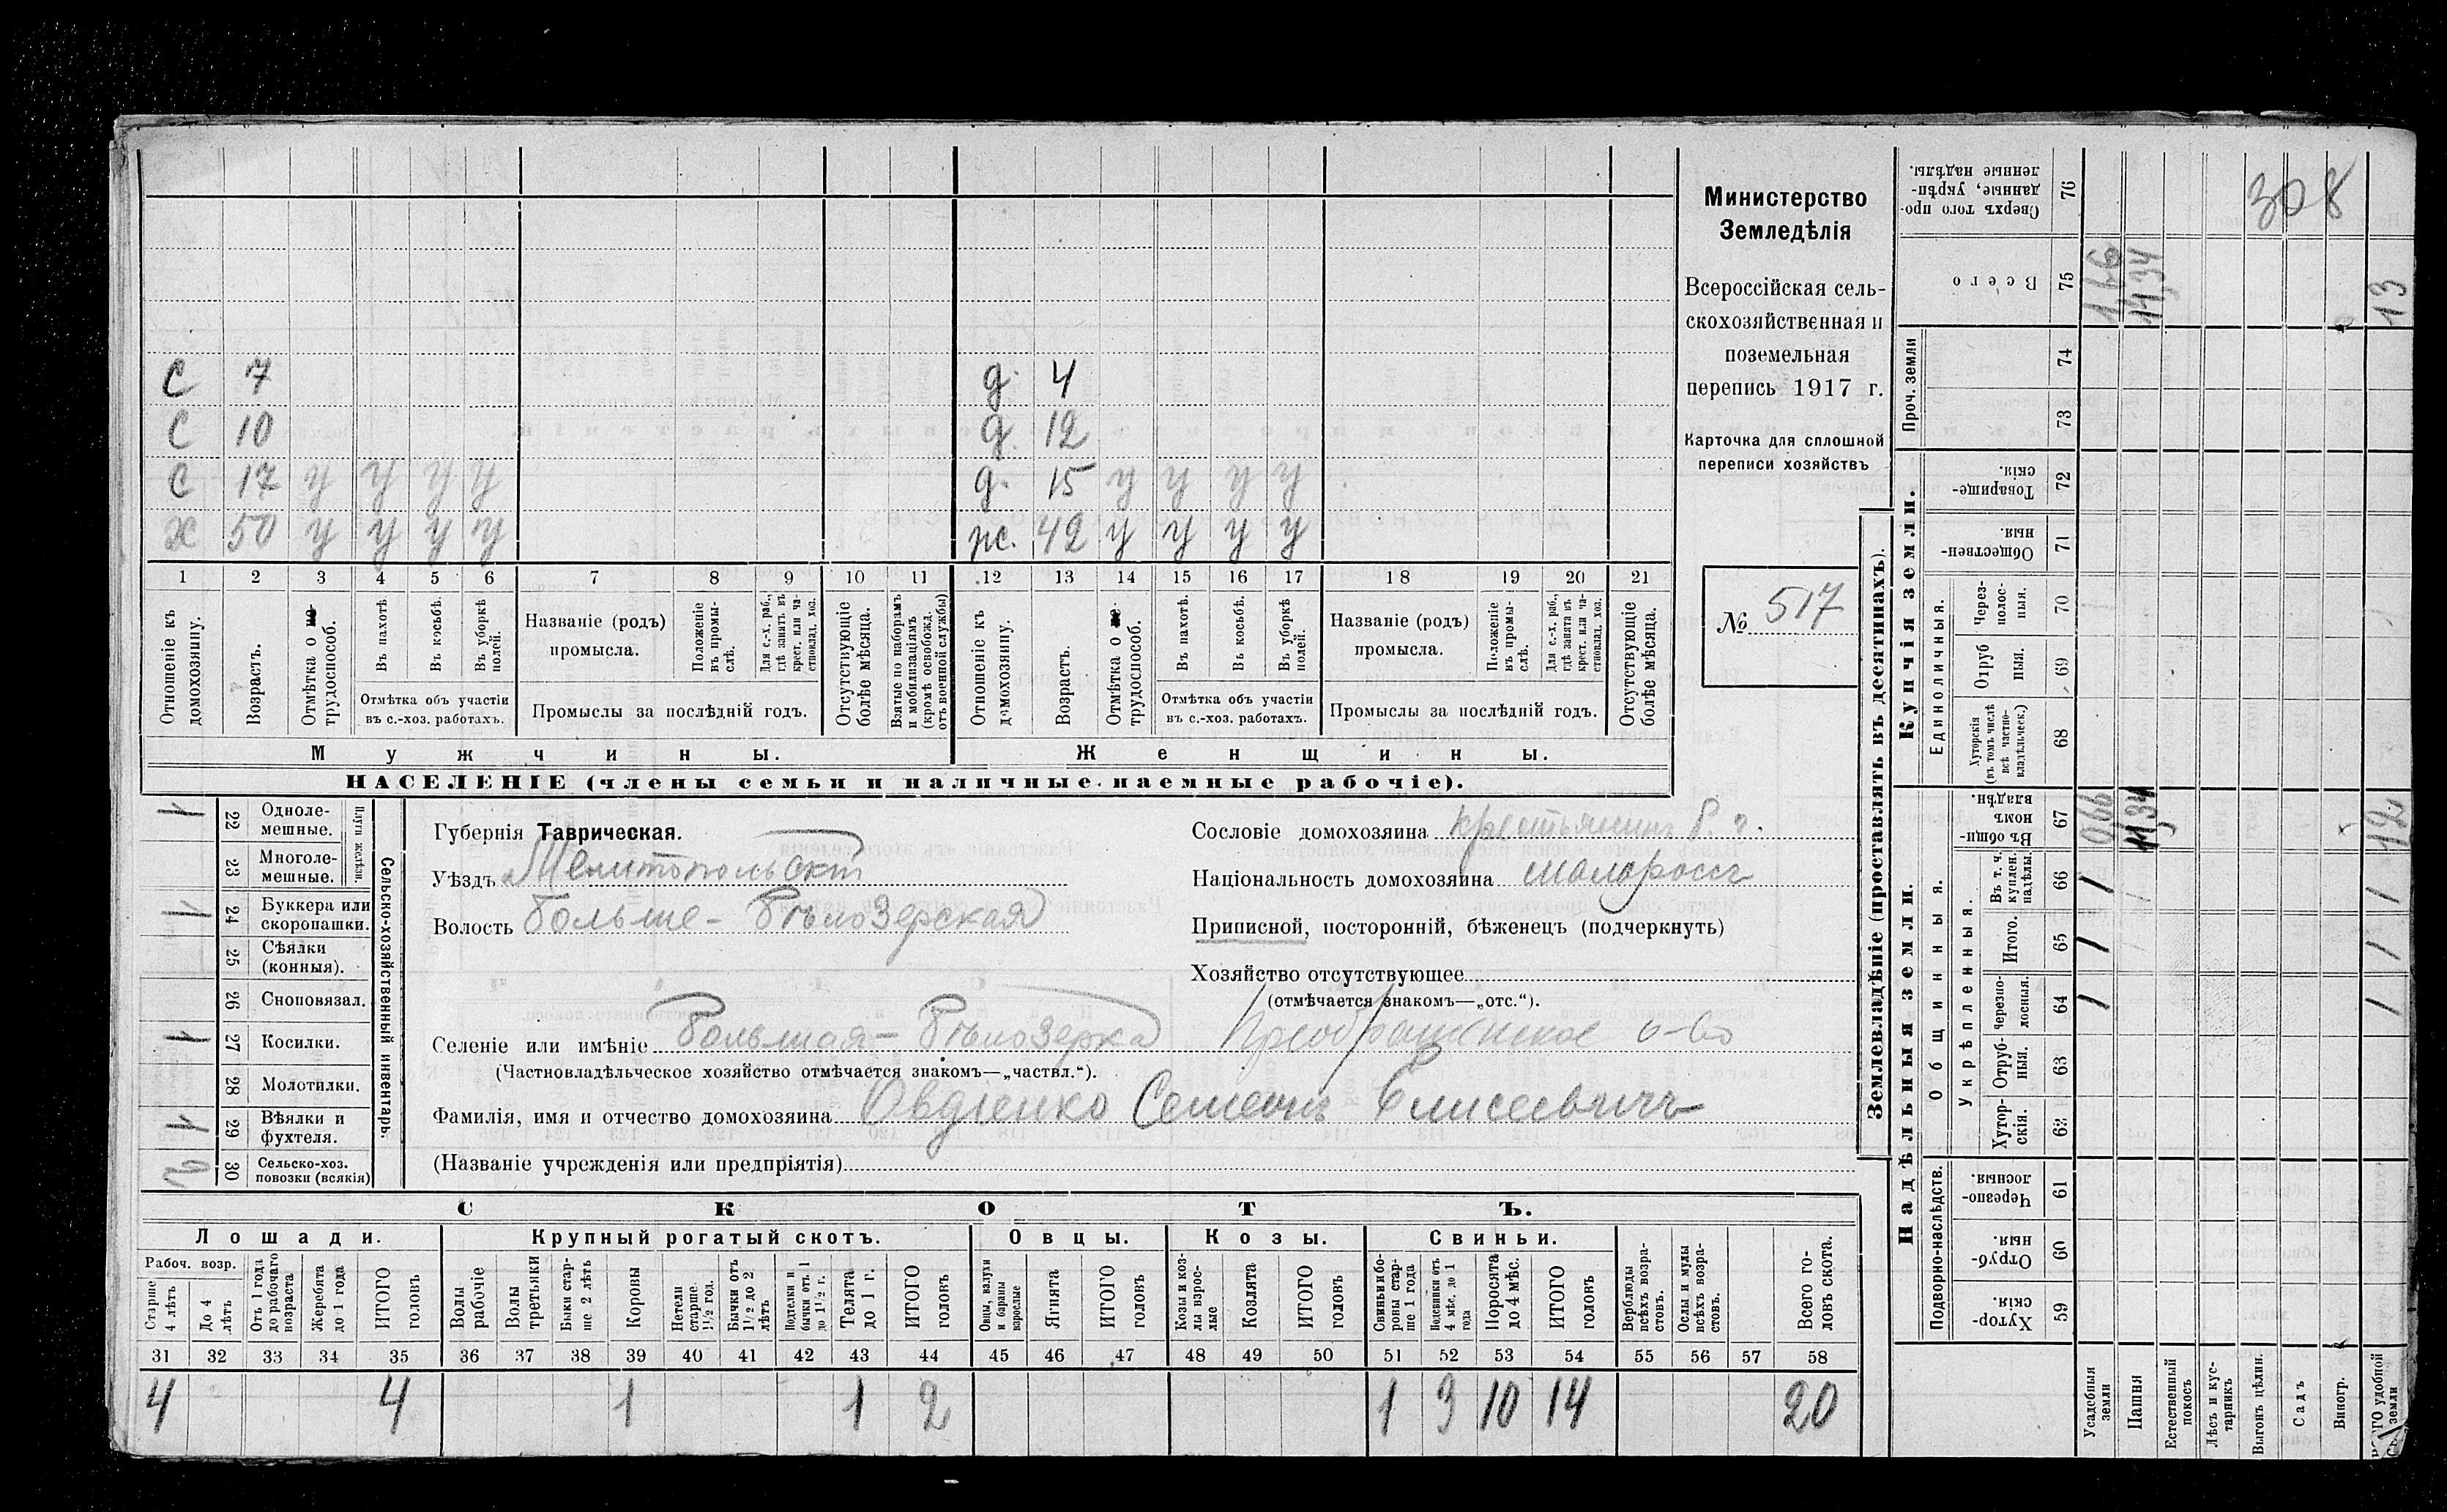 С 7 д. 4
С 10 д. 12
С 17 у у у у д. 15 у у у у
Х 50 у у у у ж. 42 у у у у
1 2 3 4 5 6 7 8 9 10 11 12 13 14 15 16 17 18 19 20 21
Отношеніе къ домохозяину.
Возрастъ.
Отмѣтка о трудоспособ.
Въ пахотѣ
Въ косьбѣ.
Въ уборкѣ полей.
Отмѣтка объ участіи въ с.-хоз. работахъ.
Названіе (родъ) промысла.
Положеніе въ промыслѣ.
Для с.-х. раб., гдѣ занятъ въ крест. или частновлад. хоз.
Промыслы за послѣдній годъ.
Отсутствующіе болѣе мѣсяца.
Взятые по наборамъ и мобилизаціямъ (кромѣ освобожд. отъ военной службы)
Отношеніе къ домохозяину.
Возрастъ.
Отмѣтка о трудоспособ.
Въ пахотѣ.
Въ косьбѣ.
Въ уборкѣ полей.
Отмѣтка объ участіи въ с.-хоз. работахъ.
Названіе (родъ) промысла.
Положеніе въ промыслѣ.
Для с.-х. раб., гдѣ занята въ крест. или частновлад. хоз.
Промыслы за послѣдній годъ.
Отсутствующіе болѣе мѣсяца.
Мужчины.
Женщины.
НАСЕЛЕНІЕ (члены семьи и наличные наемные рабочіе).
Министерство
Земледѣлія
Всероссійская сель-
скохозяйственная и
поземельная
перепись 1917 г.
Карточка для сплошной
переписи хозяйствъ
№ 517
1 22 Одноле-мешные.
23 Многоле-мешные.
Плуги желѣзн.
1 24 Буккера или скоропашки.
25 Сѣялки (конныя).
26 Сноповязал.
1 27 Косилки.
28 Молотилки.
1 29 Вѣялки и фухтеля.
2 30 Сельско-хоз. повозки (всякія)
Сельско-хозяйственный инвентарь.
Губернія Таврическая.
Уѣздъ Мелитопольскій
Волость Больше-Бѣлозерская
Селеніе или имѣніе Большая-Бѣлозерка Преображенское о-во
(Частновладѣльческое хозяйство отмѣчается знакомъ—„частвл.“).
Фамилія, имя и отчество домохозяина Овдіенко Семенъ Елисеевичъ
(Названіе учрежденія или предпріятія)
Сословіе домохозяина крестьянинъ
Національность домохозяина малороссъ
Приписной, посторонній, бѣженецъ (подчеркнуть)
Хозяйство отсутствующее
(отмѣчается знакомъ—„отс.“).
СКОТЪ.
Лошади. Крупный рогатый скотъ. Овцы. Козы. Свиньи.
Рабоч. возр.
Старше 4 лѣтъ
До 4 лѣтъ
Отъ 1 года до рабочаго возраста
Жеребята до 1 года
ИТОГО головъ
Волы рабочіе
Волы третьяки
Быки старше 2 лѣтъ
Коровы
Нетели старше 1½ год.
Бычки отъ 1½ до 2 лѣтъ
Подтелки и бычки отъ 1 до 1½ г.
Телята до 1 г.
ИТОГО головъ
Овцы, валухи и бараны взрослые
Ягнята
ИТОГО головъ
Козы и козлы взрослые
Козлята
ИТОГО головъ
Свиньи и боровы старше 1 года
Подсвинки отъ 4 мѣс. до 1 года
Поросята до 4 мѣс.
ИТОГО головъ
Верблюды всѣхъ возрастовъ.
Ослы и мулы всѣхъ возрастовъ.
Всего головъ скота.
31 32 33 34 35 36 37 38 39 40 41 42 43 44 45 46 47 48 49 50 51 52 53 54 55 56 57 58
4 4 1 1 2 1 3 10 14 20
Землевладѣніе (проставлять въ десятинахъ).
Надѣльныя земли. Купчія земли.
Подворно-наслѣдств.
Общинныя.
Укрѣпленныя.
Единоличныя.
Проч. земли
76 Сверхъ того проданные, укрѣпленные надѣлы.
75 Всего
74
73
72 Товарищескія.
71 Общественныя.
70 Черезполосныя.
69 Отрубныя.
68 Хуторскія (въ томъ числѣ всѣ частновладѣльческ.)
67 Въ общинномъ владѣн.
66 Въ т. ч. куплен. надѣлы.
65 Итого.
64 Черезполосныя.
63 Отрубныя.
62 Хуторскія.
61 Черезполосныя.
60 Отрубныя.
59 Хуторскія.
Усадебныя земли
Пашня
Естественный покосъ
Лѣсъ и кустарникъ
Выгонъ цѣлин.
Садъ
Виногр.
удобной земли
1,66
0,66
11,34
13
12
308